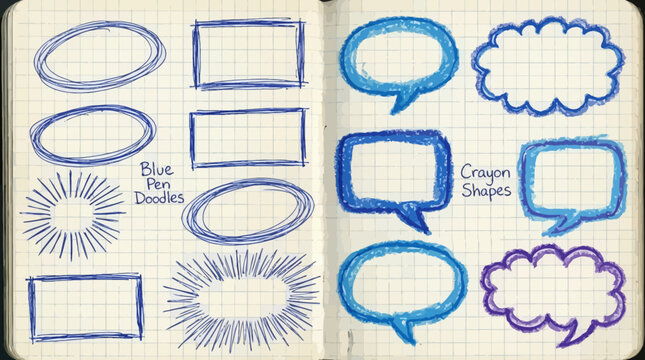 Blue
Pen
Doodles
Crayon
Shapes